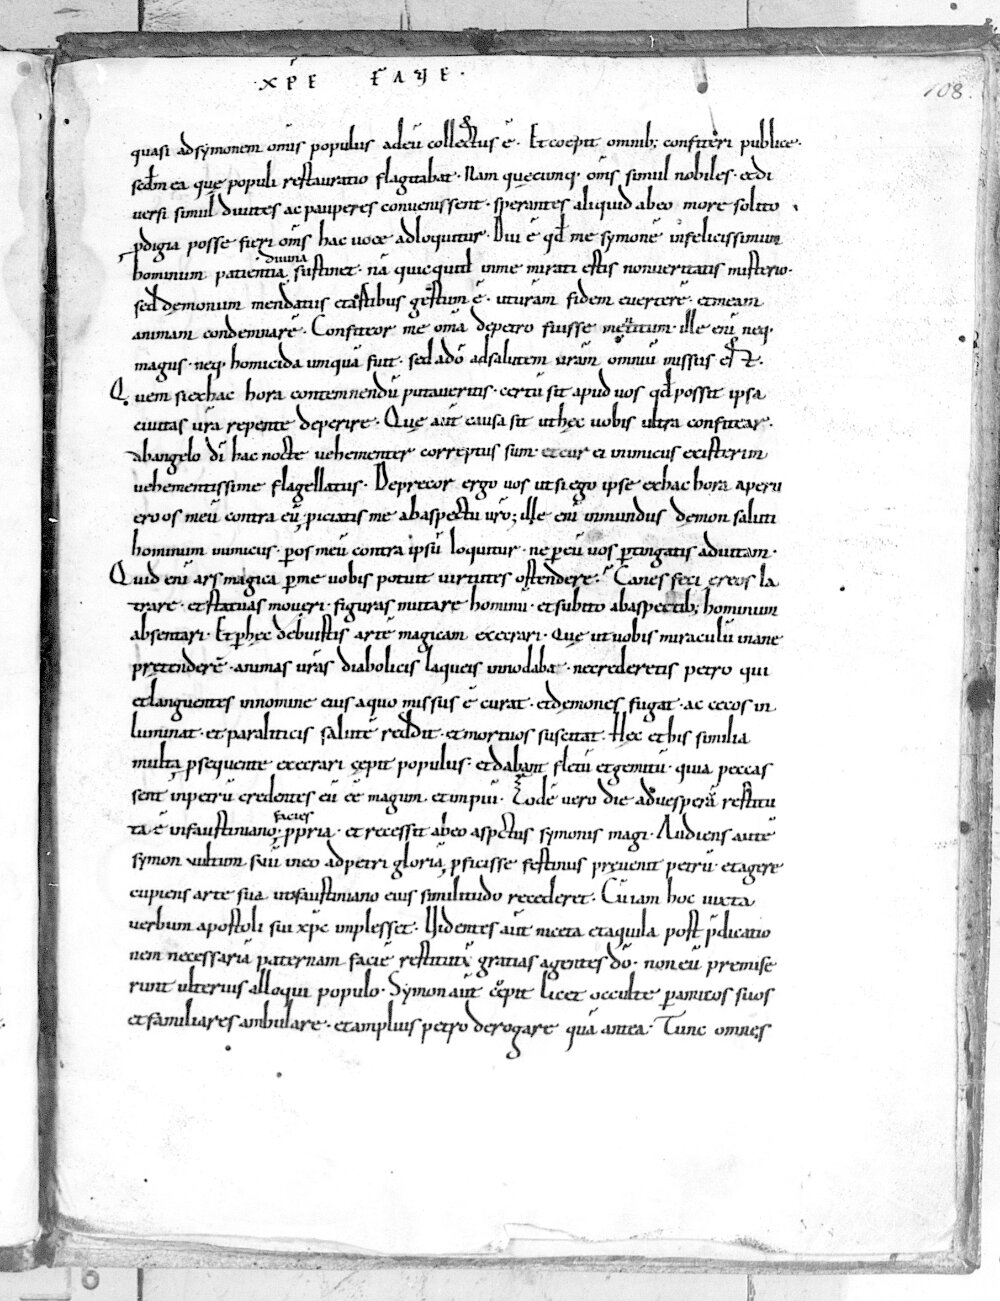 ·XP̄E F̄AVE·
108.
quasi adsymonem om̄is populus adeū collectus ē· Et coepit omnib; confiteri publice·
sed̄ in ea quę populi restauratio flagitabat· Nam quęcunq· om̄s simul nobiles· et di
versi simul divites ac pauperes convenissent· sperantes aliquid abeo more solito
p̄digia posse fieri om̄s hac voce adloquitur· Dm̄ ē qd̄ me symonē infelicissimum
hominum patientia divina sustinet· nā quicquid inme mirati estis nonveritatis misterio·
sed demonum mendatiis et artibus gestum ē· ut urām fidem everterē· et meam
animam condemnarē· Confiteor me om̄a depetro fuisse mentitum· ille enī neq·
magus· neq· homicida umquā fuit· sed adō adsalutem urām omniū missus est
Quem si exhac hora contemnendū putaveritis· certū sit apud vos qd̄ possit ipsa
civitas ūra repente deperire· Quę aūt causa sit ut hęc vobis ultra confitear·
abangelo dī hac nocte vehementer correptus sum et cur ei inimicus existerim
vehementissime flagellatus· Deprecor ergo vos ut si ego ipse exhac hora aperu
ero os meū contra eū piciatis me abaspectu ūro; ille enī inmundus demon saluti
hominum inimicus· p̄ os meū contra ipsū loquitur· ne p̄ eū vos p̄tingatis advitam·
Quid enī ars magica p̄ me vobis potuit virtutes ostendere· Canes feci ereos la
trare· et statuas moveri· figuras mutare hominū· et subito abaspectib; hominum
absentari· Et p̄ hęc debuistis artē magicam execrari· Quę ut vobis miraculū inane
prętenderē· animas ūras diabolicis laqueis innodabā· necrederetis petro qui
et languentes innomine eius aquo missus ē curat· et demones fugat· ac cecos in
luminat· et paraliticis salutē reddit· et mortuos suscitat· Hec et his similia
multa p̄sequente execrari cępit populus· et dabant fletū et gemitū· quia peccas
sent inpetrū credentes eū ēē magum et impiū· Eodē vero die advesperā restitu
ta ē infaustiniano facies p̄pria· et recessit abeo aspectus symonis magi· Audiens autē
symon vultum suū ineo adpetri gloriā p̄ficisse festinus pręvenit petrū et agere
cupiens arte sua utafaustiniano eius similitudo recederet· Cū iam hoc iuxta
verbum apostoli sui xp̄c implesset· Videntes aūt niceta et aquila post p̄dicatio
nem necessariā paternam faciē restitutā gratias agentes dō· non eū premise
runt ulterius alloqui populo· Symon aūt cępit licet occulte p̄ amicos suos
et familiares ambulare· et amplius petro derogare quā antea· Tunc omnes